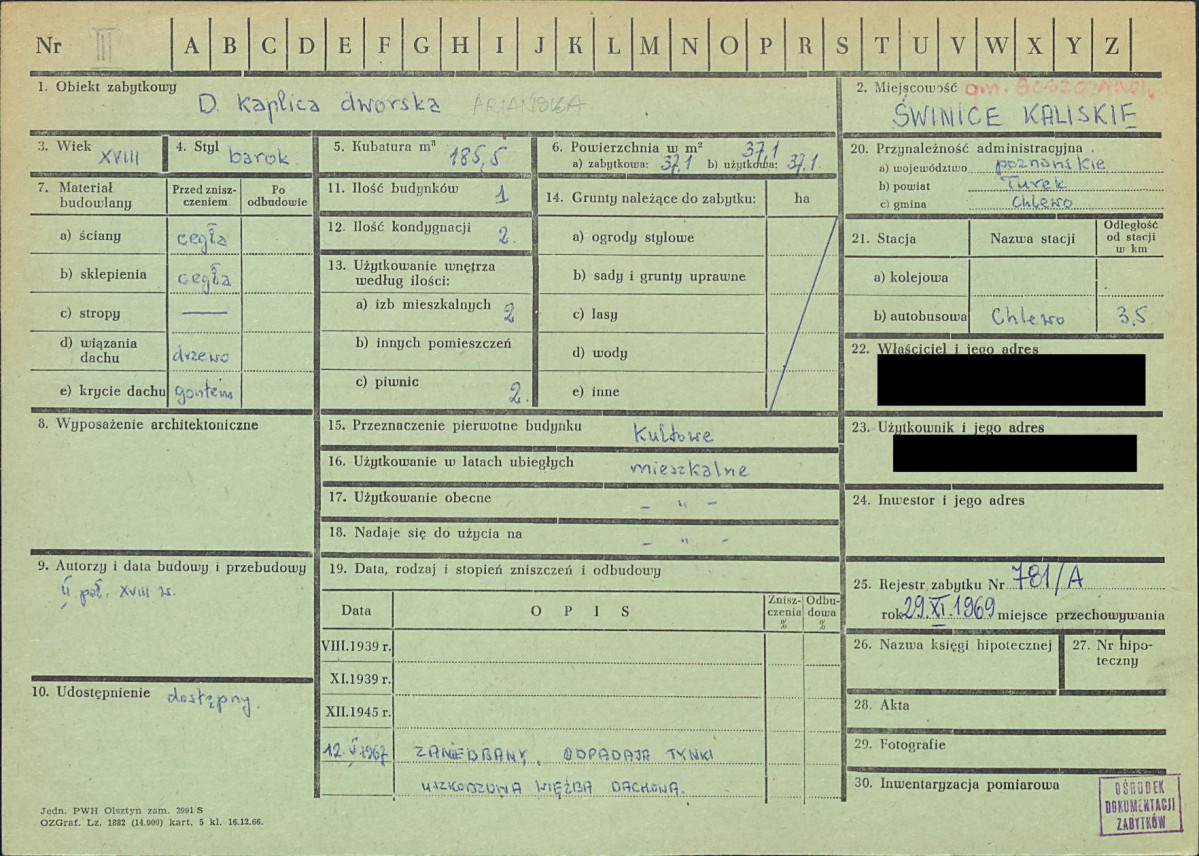 Nr III A B C D E F G H I J K L M N O P R S T U V W X Y Z
1. Obiekt zabytkowy
D. Kaplica dworska ARIAŃSKA
2. Miejscowość gm.
ŚWINICE KALISKIE
3. Wiek XVIII
4. Styl barok.
5. Kubatura m³ 185,5
6. Powierzchnia w m² 37,1
a) zabytkowa: 37,1 b) użytkowa: 37,1.
20. Przynależność administracyjna
a) województwo poznańskie
b) powiat Turek
c) gmina Chlewo
7. Materiał budowlany
Przed zniszczeniem
Po odbudowie
a) ściany cegła
b) sklepienia cegła
c) stropy —
d) wiązania dachu drzewo
e) krycie dachu gontem
11. Ilość budynków 1
12. Ilość kondygnacji 2.
13. Użytkowanie wnętrza według ilości:
a) izb mieszkalnych 2
b) innych pomieszczeń
c) piwnic 2.
14. Grunty należące do zabytku: ha
a) ogrody stylowe
b) sady i grunty uprawne
c) lasy
d) wody
e) inne
21. Stacja
Nazwa stacji
Odległość od stacji w km
a) kolejowa
b) autobusowa Chlewo 3,5.
22. Właściciel i jego adres
8. Wyposażenie architektoniczne
15. Przeznaczenie pierwotne budynku Kultowe
16. Użytkowanie w latach ubiegłych mieszkalne
17. Użytkowanie obecne – " –
18. Nadaje się do użycia na – " –
23. Użytkownik i jego adres
24. Inwestor i jego adres
9. Autorzy i data budowy i przebudowy
II poł. XVIII w.
19. Data, rodzaj i stopień zniszczeń i odbudowy
Data
O P I S
Zniszczenia %
Odbudowa %
VIII.1939 r.
XI.1939 r.
XII.1945 r.
12.V.1967 ZANIEDBANY, ODPADAJĄ TYNKI
USZKODZONA WIĘŹBA DACHOWA.
25. Rejestr zabytku Nr 781/A
rok 29.XI.1969 miejsce przechowywania
26. Nazwa księgi hipotecznej
27. Nr hipoteczny
10. Udostępnienie dostępny.
28. Akta
29. Fotografie
30. Inwentaryzacja pomiarowa
OŚRODEK
DOKUMENTACJI
ZABYTKÓW
Jedn. PWH Olsztyn zam. 3991/S
OZGraf. Lz. 1882 (14.000) kart. 5 kl. 16.12.66.